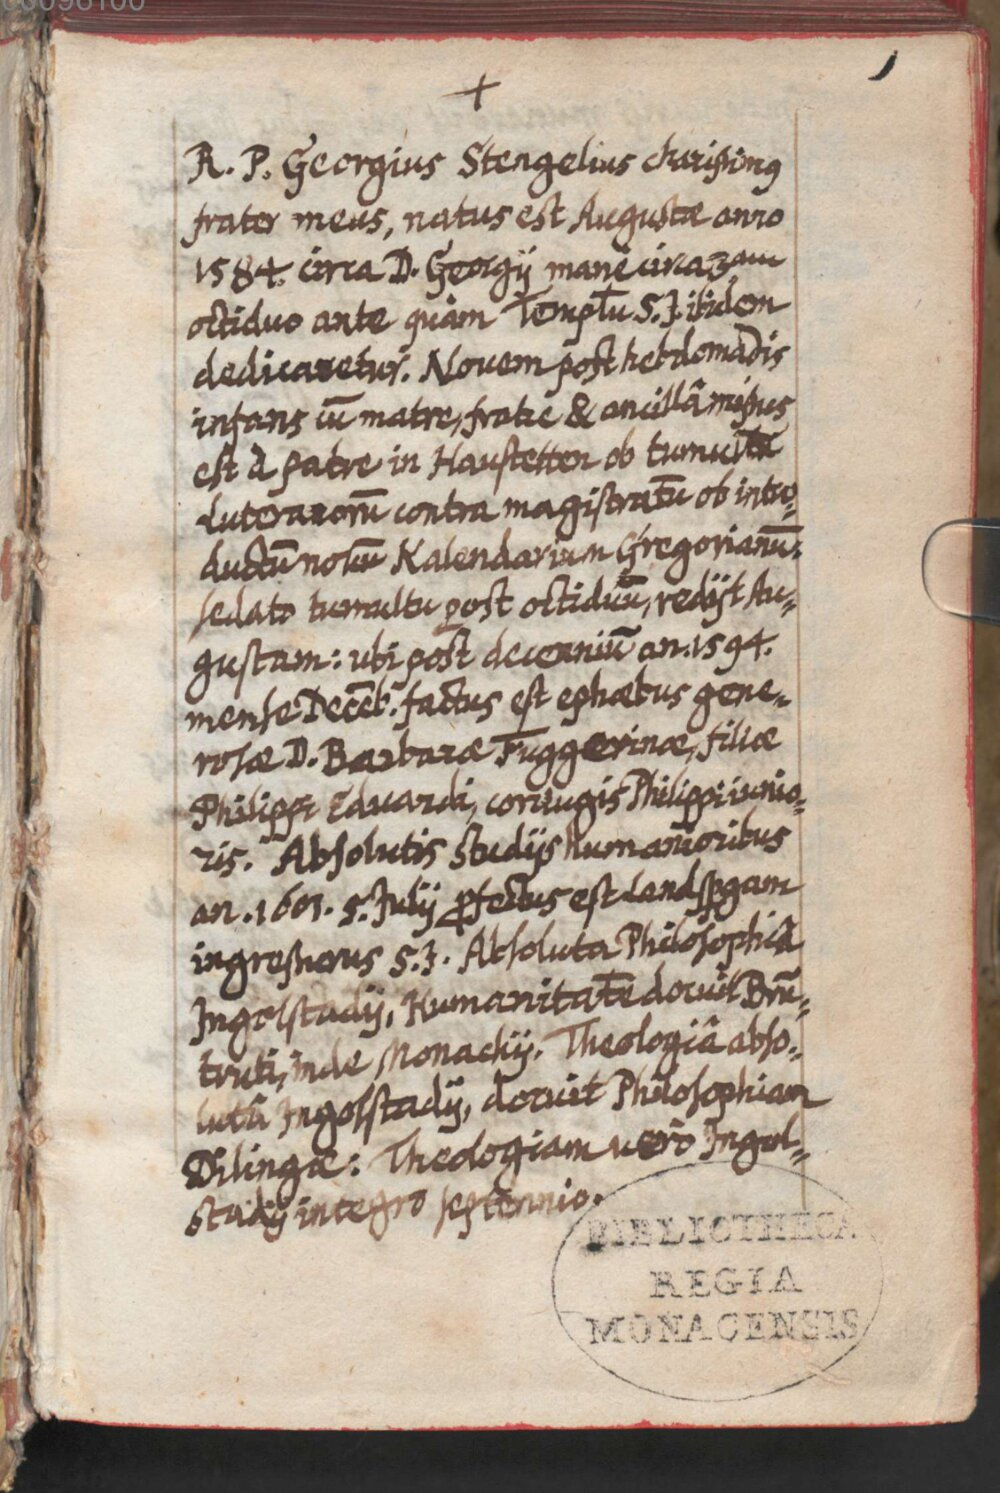 00096100
1
+
R. P. Georgius Stengelius charissimꝯ
frater meus, natus est Augustæ anno
1584. circa D. Georgij mane circa 3am
octiduo ante quàm Templū S.J. ibidem
dedicaretur. Novem post hebdomadis
infans cū matre, fratre & ancillâ missus
est à patre in Haustetten ob tumultū
Luteranorū contra magistratū ob intro-
ductū novū Kalendarium Gregorianū:
sedato tumultu post octiduū, redijt Au-
gustam: ubi post decenniū an. 1594.
mense Decēb. factus est ephæbus gene-
rosæ D. Barbaræ Fuggerinæ, filiæ
Philippi Eduardi, coniugis Philippi iunio-
ris. Absolutis studijs humanioribus
an. 1601. 5. Julij ꝓfectus est Landspgam
ingressurus S.J. Absoluta Philosophiâ
Ingolstadij, Humanitatē docuit Brū-
truti, inde Monachij. Theologiâ abso-
lutâ Ingolstadij, docuit Philosophiam
Dilingæ: Theologiam uerò Ingol-
stadij integro septennio.
BIBLIOTHECA
REGIA
MONACENSIS